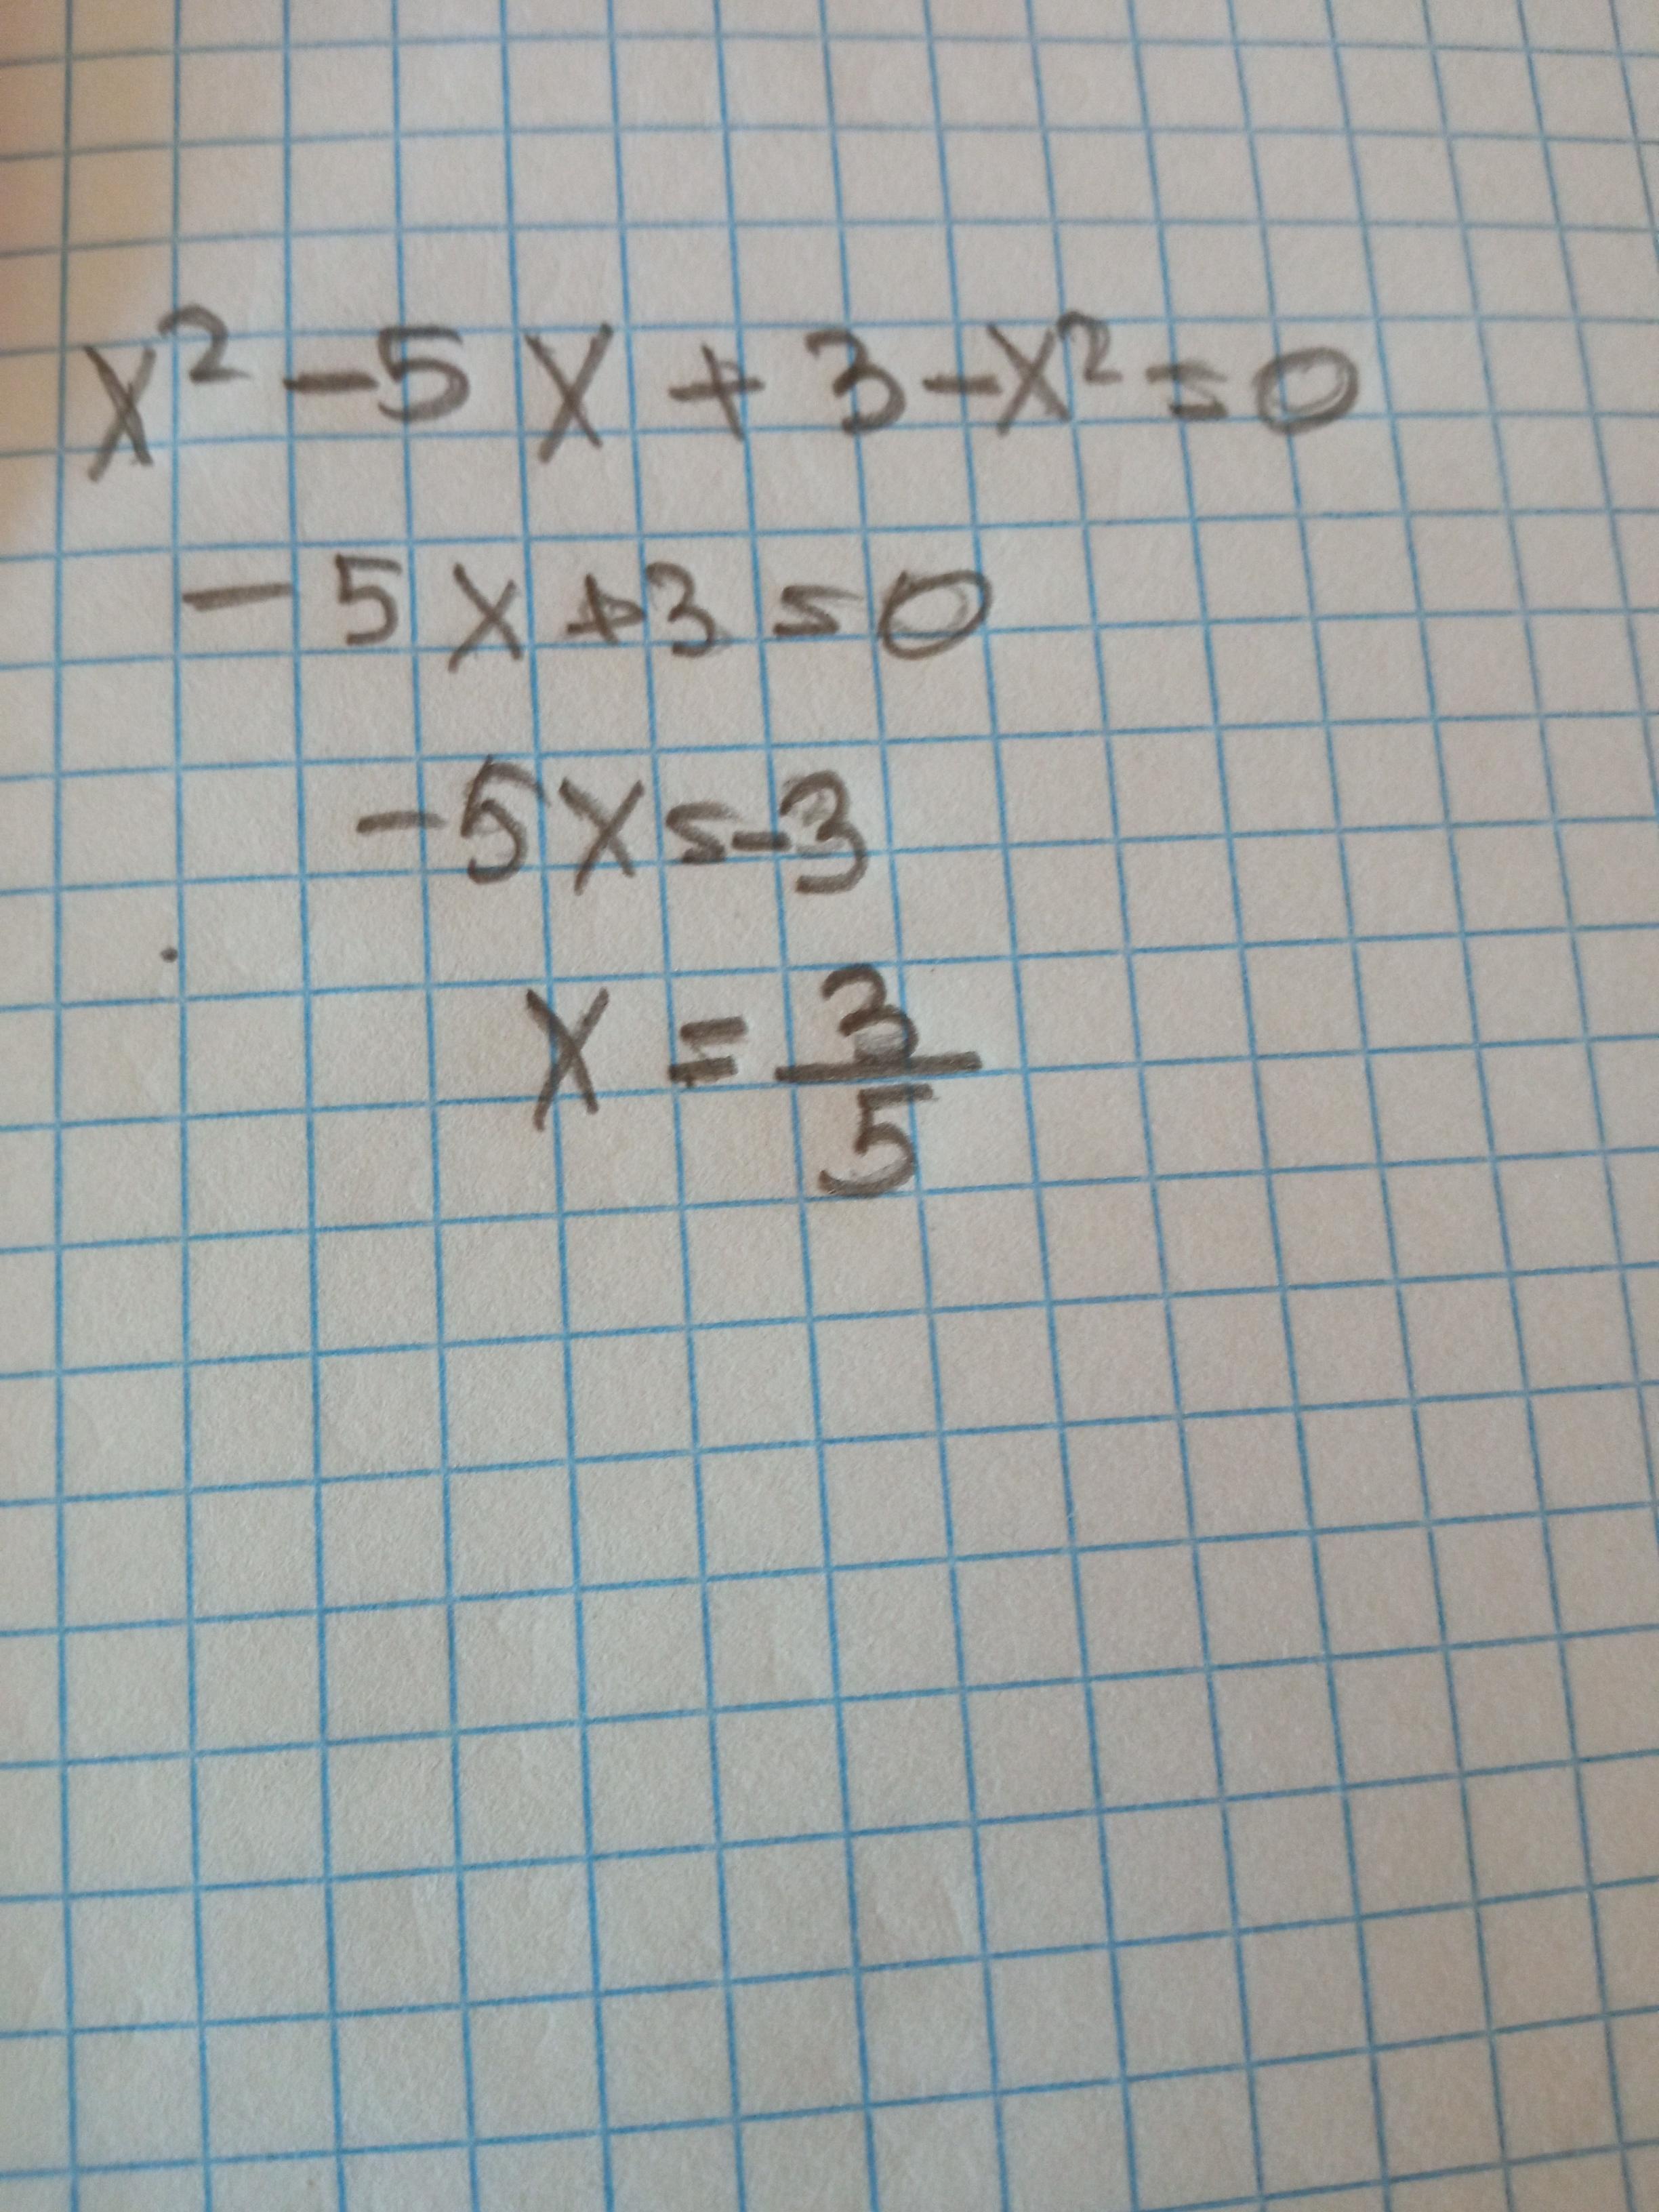 x² - 5x + 3 - x² = 0
- 5x + 3 = 0
- 5x = -3
x = 3/5